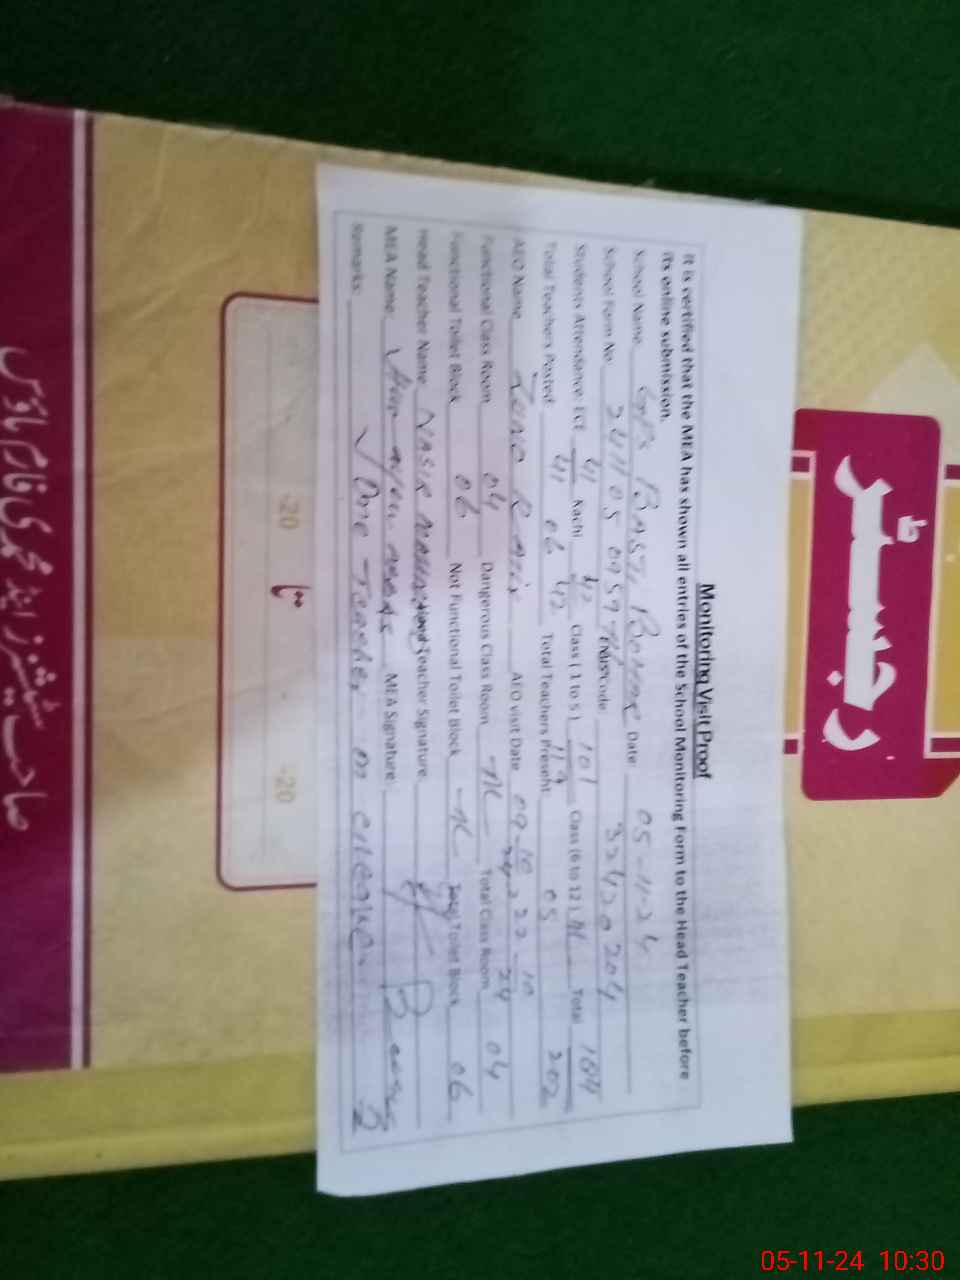 رجسٹر
Monitoring Visit Proof
It is certified that the MEA has shown all entries of the School Monitoring Form to the Head Teacher before
its online submission.
School Name GPS BASTI Date: 05-11-24
School Form No. 241105 0959 Code: 32420204
Students Attendance: ECE 41 Kachi 42 Class ( 1 to 5 ) 101 Class (6 to 12 ) Nil Total 184
41 06 42 119 202
Total Teachers Posted: 06 Total Teachers Present: 05
AEO Name AEO visit Date 09-10-24, 22-10-24
Functional Class Room 04 Dangerous Class Room Nil Total Class Room 04
Functional Toilet Block 06 Not Functional Toilet Block Nil Total Toilet Block 06
Head Teacher Name NASIR Head Teacher Signature:
MEA Name: MEA Signature:
Remarks: One Teacher on
-20 تا -20
صاحب سٹیشنرز اینڈ محمدی فارم ہاؤس
05-11-24 10:30